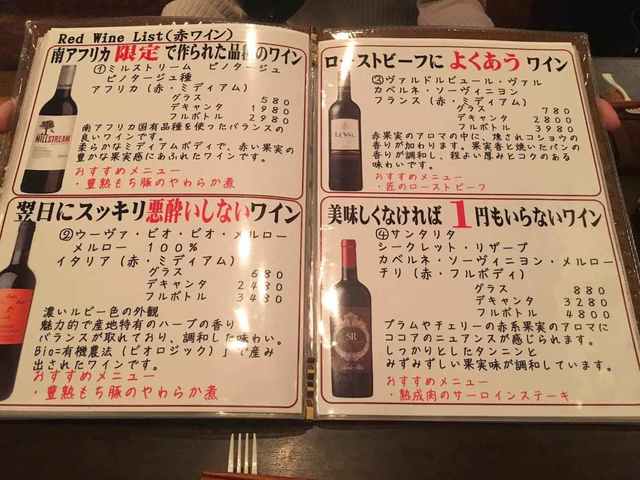 Red Wine List(赤ワイン)
南アフリカ限定で作られた品種のワイン
①ミルストリーム ピノタージュ
ピノタージュ種
アフリカ(赤・ミディアム)
グラス 580
デキャンタ 1980
フルボトル 2980
南アフリカ固有品種を使ったバランスの
良いワインです。
柔らかなミディアムボディで、赤い果実の
豊かな果実感にあふれたワインです。
おすすめメニュー
・豊熟もち豚のやわらか煮
MILLSTREAM
翌日にスッキリ悪酔いしないワイン
②ウーヴァ・ビオ・ビオ・メルロー
メルロー 100%
イタリア(赤・ミディアム)
グラス 680
デキャンタ 2480
フルボトル 3480
濃いルビー色の外観
魅力的で産地特有のハーブの香り
バランスが取れており、調和した味わい。
Bio=有機農法(ビオロジック)」で産み
出されたワインです。
おすすめメニュー
・豊熟もち豚のやわらか煮
ローストビーフに よくあう ワイン
③ヴァルドルビュール・ヴァル
カベルネ・ソーヴィニヨン
フランス(赤・ミディアム)
グラス 780
デキャンタ 2800
フルボトル 3980
赤果実のアロマの中に、挽きされコショウの
香りが加わります。果実香と焼いたパンの
香りが調和し、程よい厚みとコクのある
味わいです。
おすすめメニュー
・匠のローストビーフ
美味しくなければ 1円もいらないワイン
④サンタリタ
シークレット・リザーブ
カベルネ・ソーヴィニヨン・メルロー
チリ(赤・フルボディ)
グラス 880
デキャンタ 3280
フルボトル 4800
プラムやチェリーの赤系果実のアロマに
ココアのニュアンスが感じられます。
しっかりとしたタンニンと
みずみずしい果実味が調和しています。
おすすめメニュー
・熟成肉のサーロインステーキ
SR